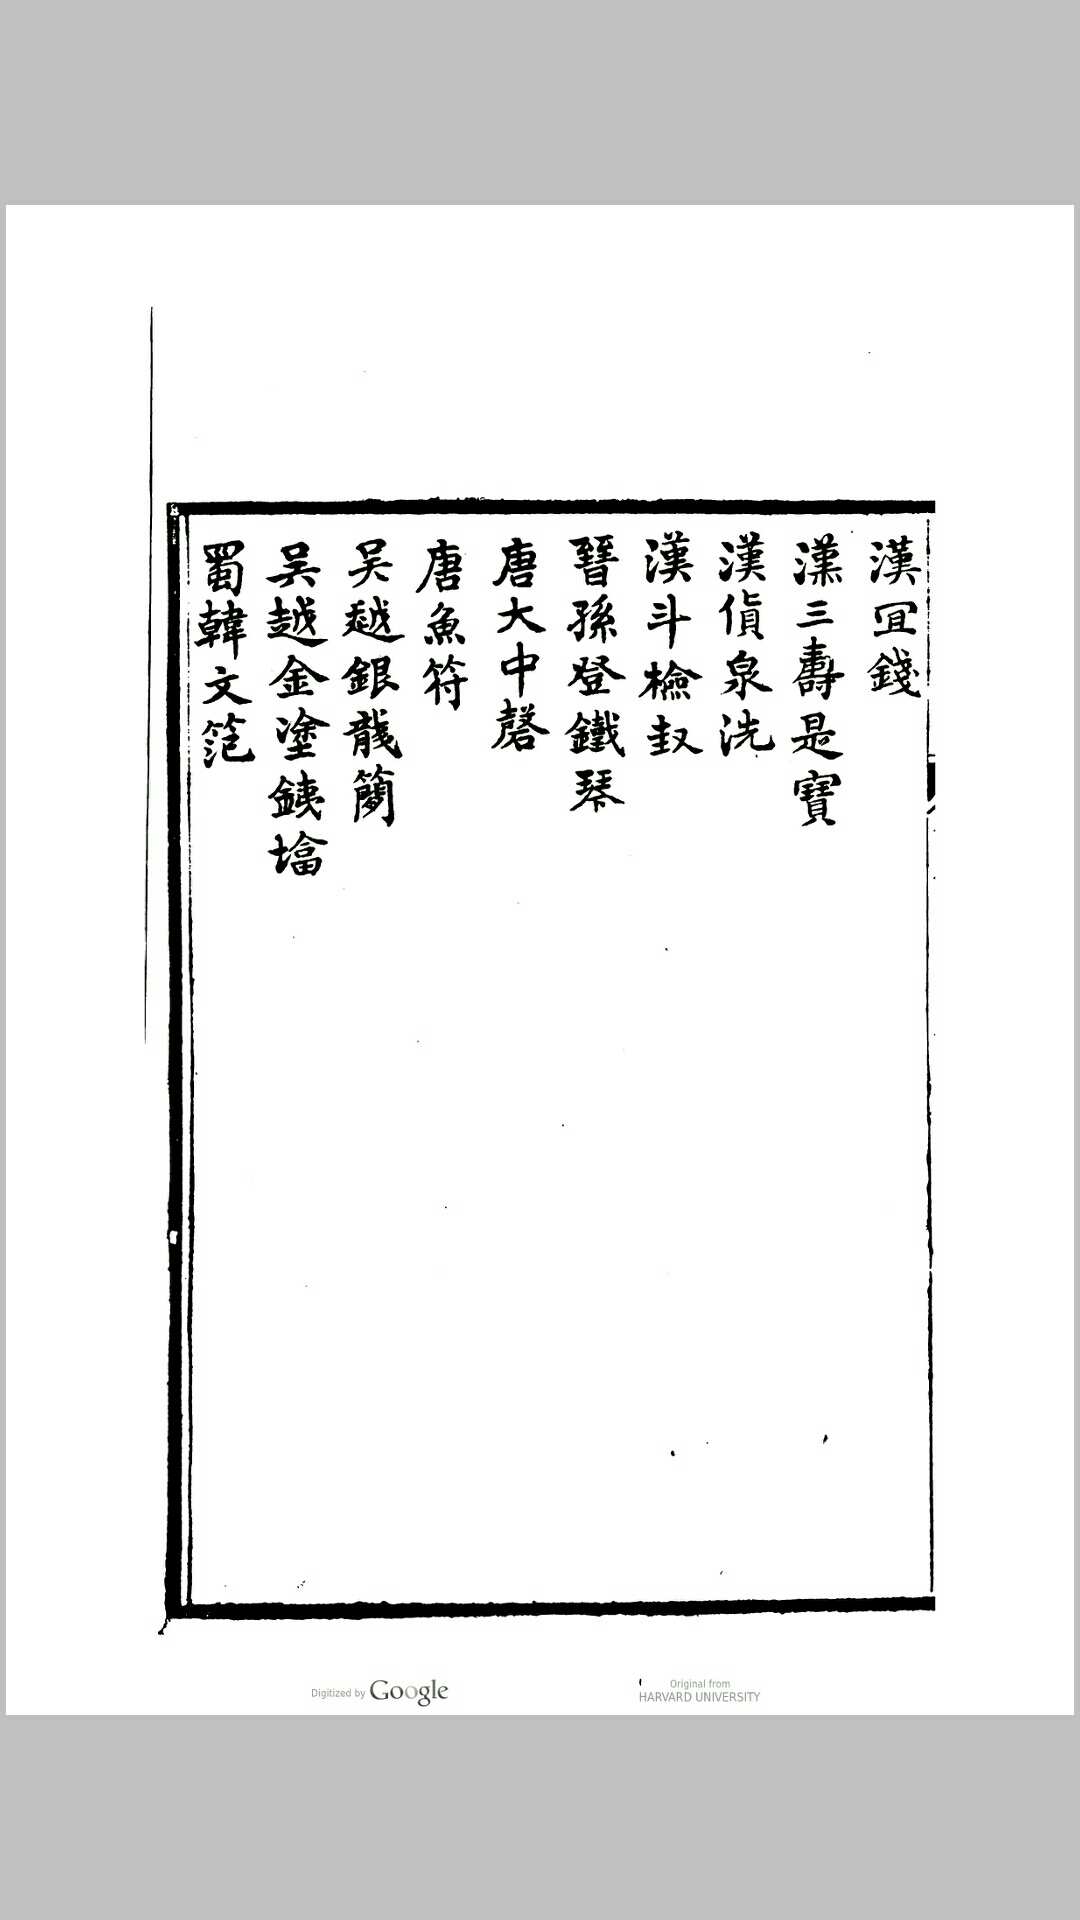 漢冝錢
漢三壽是寶
漢偵泉洗
漢斗檢封
晉孫登鐵琴
唐大中磬
唐魚符
吴越銀龍簡
吴越金塗銕塔
蜀韓文范
Digitized by Google
Original from
HARVARD UNIVERSITY